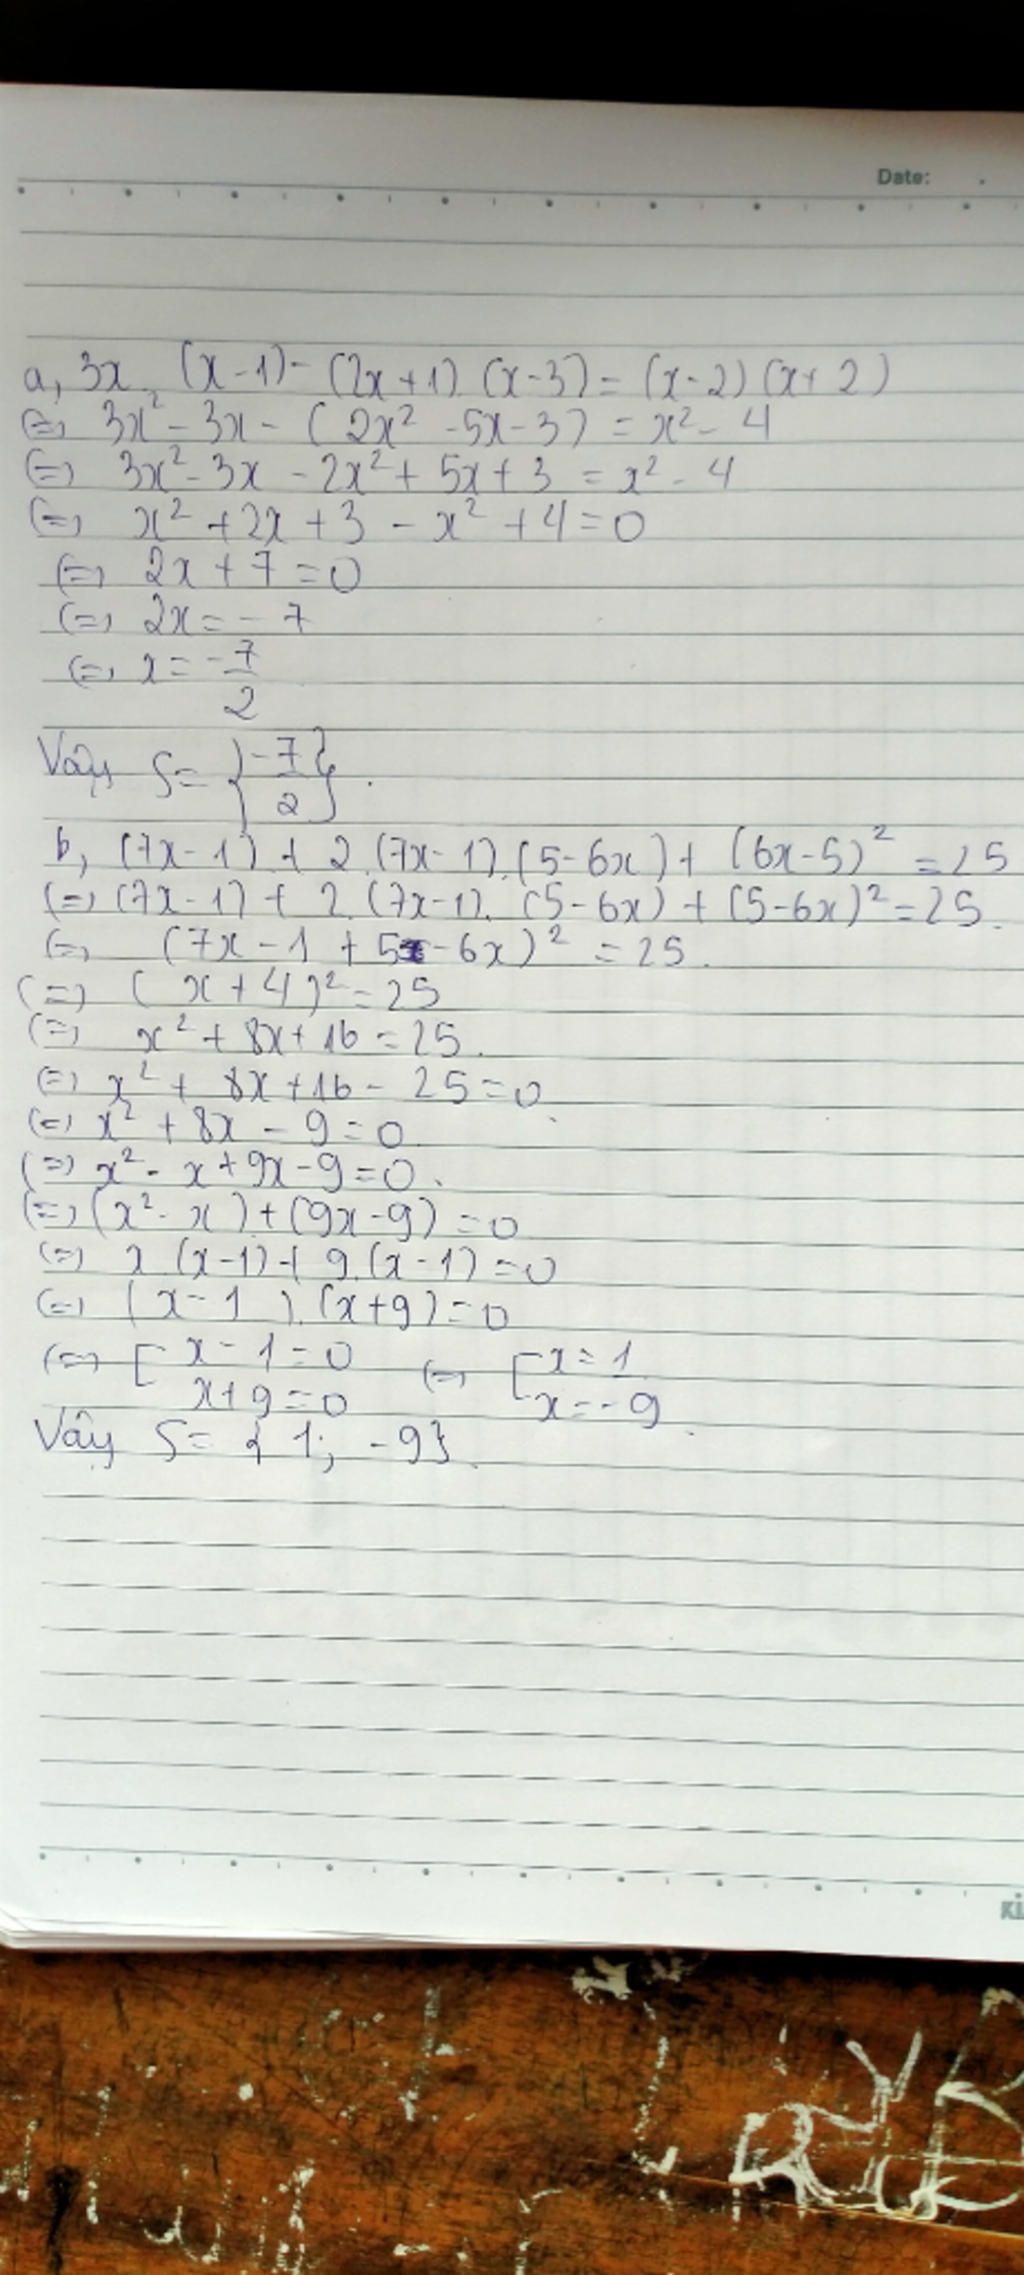 Date:
a, 3x. (x-1) - (2x+1) (x-3) = (x-2) (x+2)
(=) 3x² - 3x - (2x² -5x-3) = x² - 4
(=) 3x² - 3x - 2x² + 5x + 3 = x² - 4
(=) x² + 2x + 3 - x² + 4 = 0
(=) 2x + 7 = 0
(=) 2x = -7
(=) x = -7/2
Vậy S = {-7/2}.
b, (7x-1) + 2.(7x-1).(5-6x) + (6x-5)² = 25
(=) (7x-1) + 2.(7x-1).(5-6x) + (5-6x)² = 25.
(=) (7x-1 + 5-6x)² = 25.
(=) (x+4)² = 25
(=) x² + 8x + 16 = 25.
(=) x² + 8x + 16 - 25 = 0.
(=) x² + 8x - 9 = 0.
(=) x² - x + 9x - 9 = 0.
(=) (x² - x) + (9x-9) = 0
(=) x (x-1) + 9.(x-1) = 0
(=) (x-1).(x+9) = 0
(=) [ x-1 = 0 (=) [ x = 1
x+9 = 0 x = -9.
Vậy S = {1; -9}.